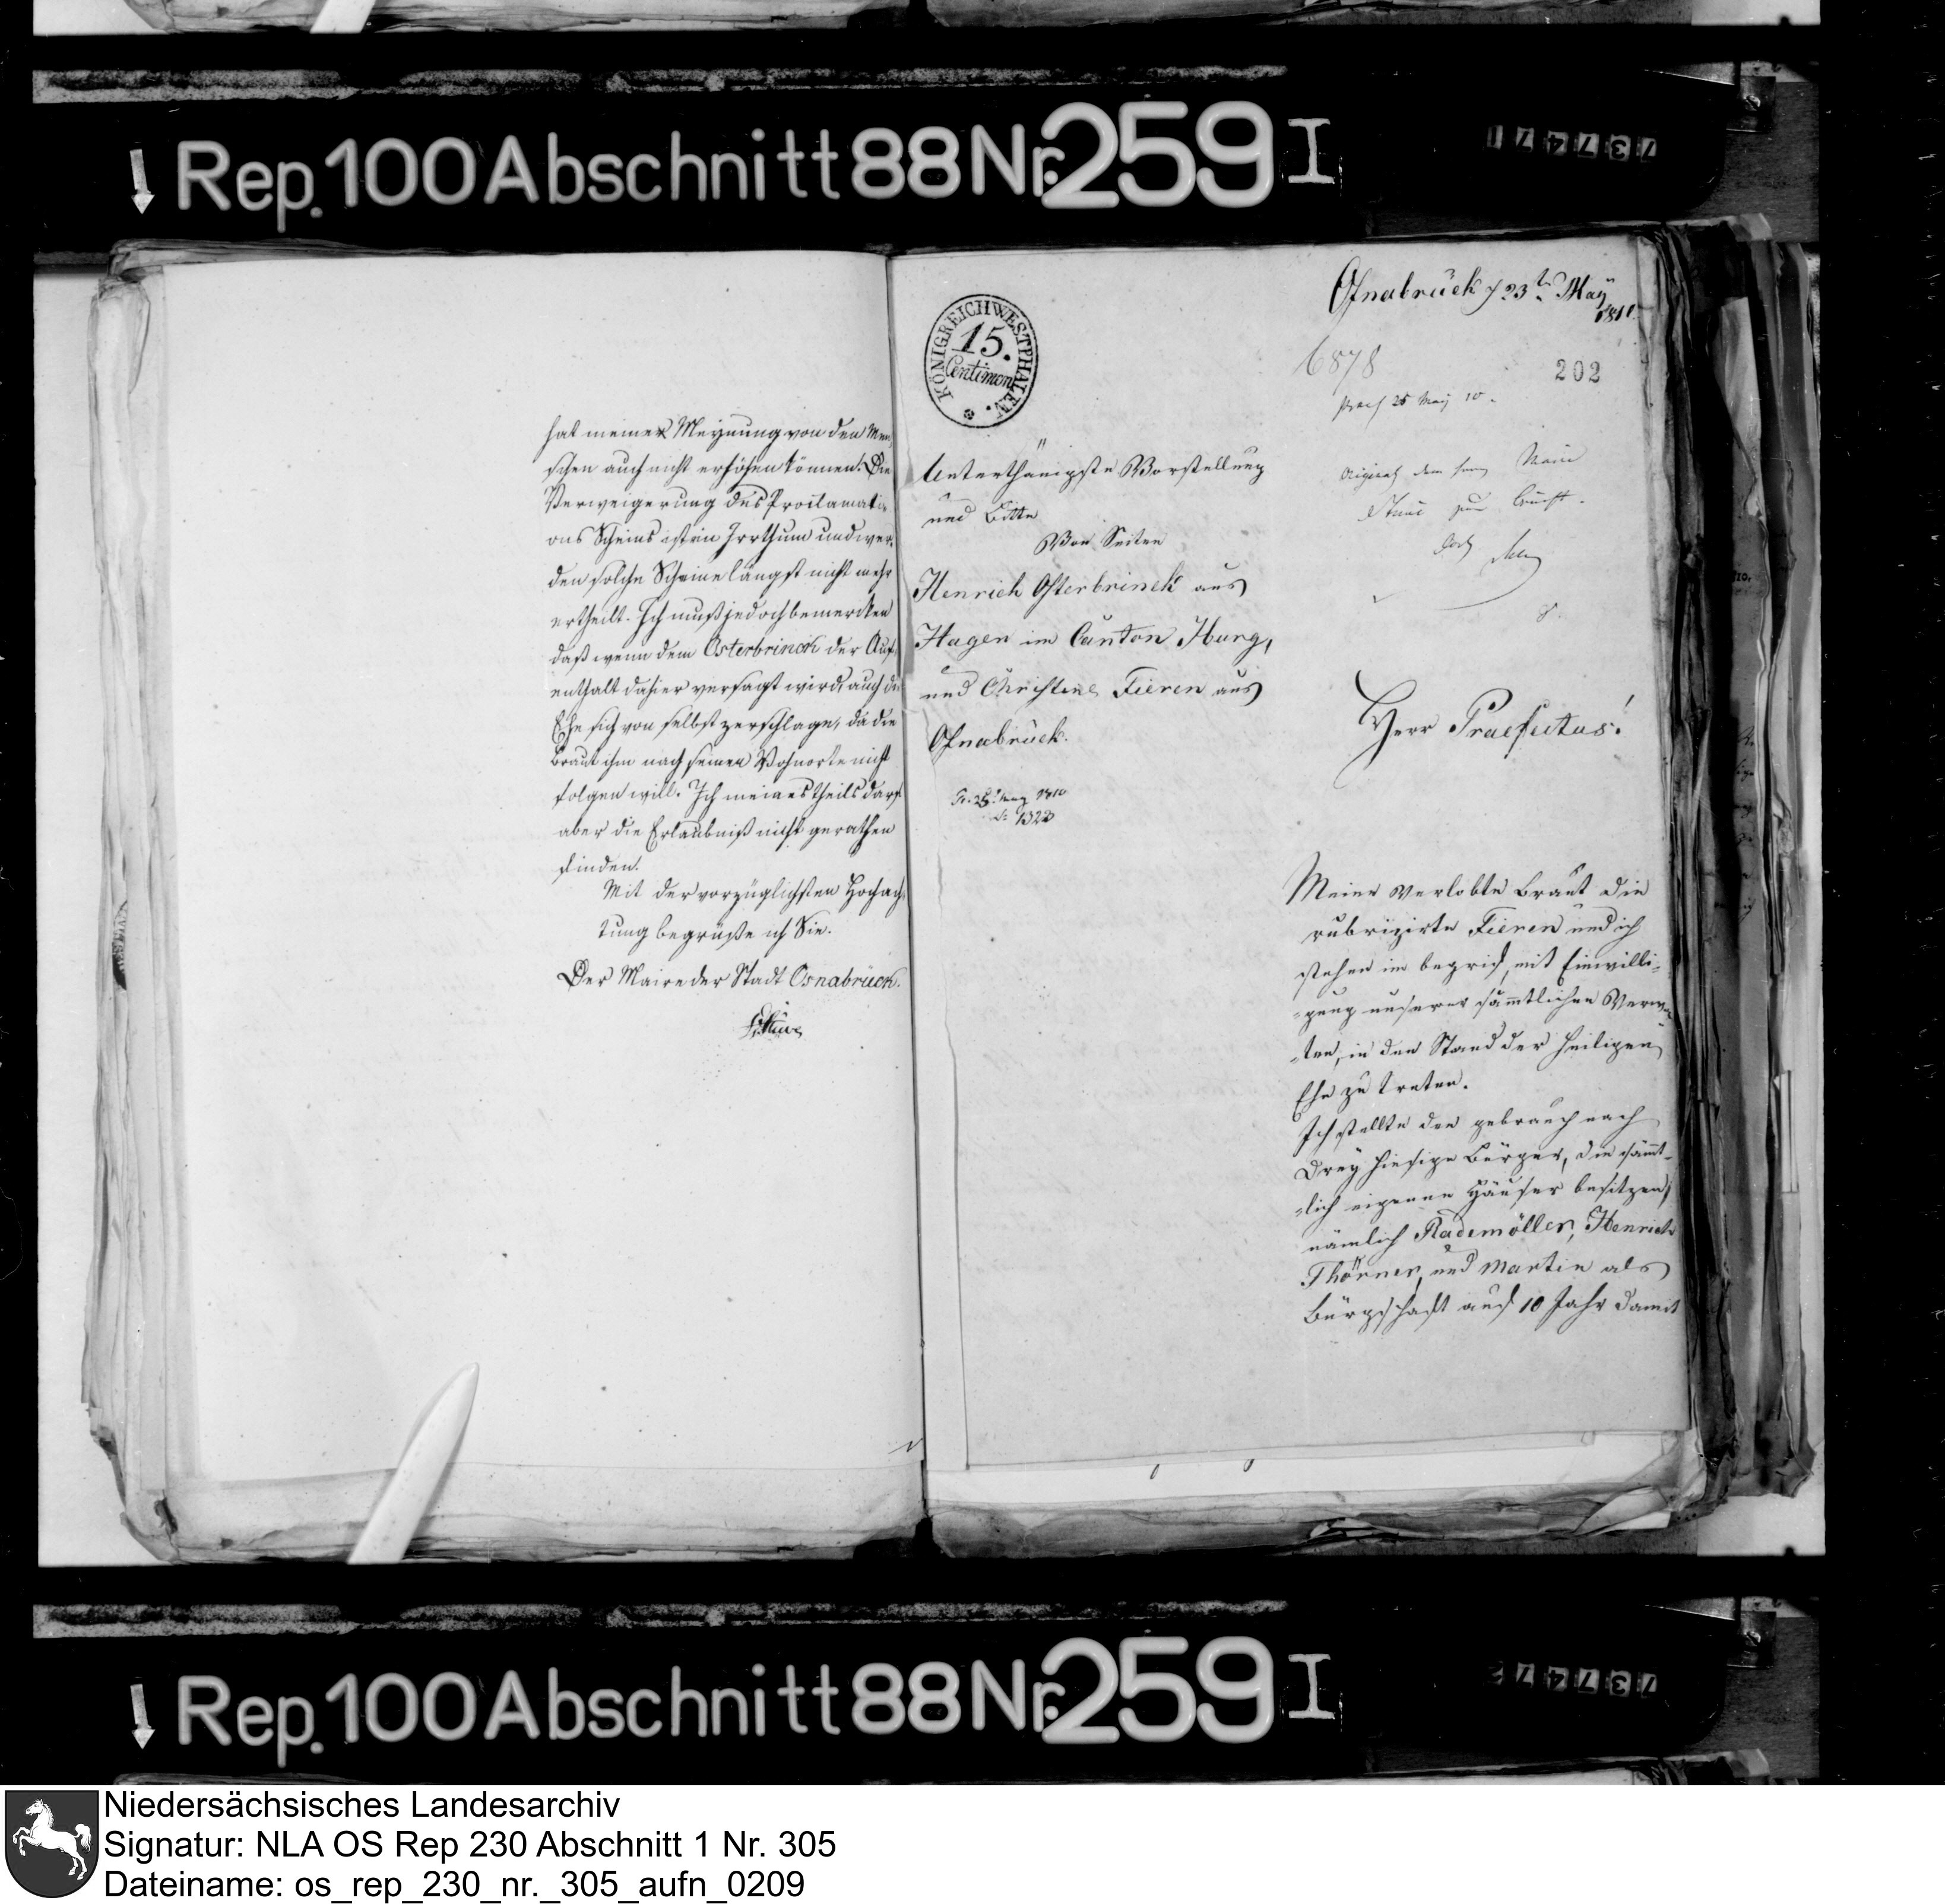 Rep. 100 Abschnitt 88 Nr. 259 I
737471
hat meiner Meynung von den Men
schen auch nicht erhöhen können. Die
Verweigerung des Proclamati-
ons Scheins ist ein Irrthum und wer-
den solche Scheine längst nicht mehr
ertheilt. Ich muß jedoch bemercken
daß wenn dem Osterbrinck der Auf-
enthalt dahier versagt wird, auch die
Ehe sich von selbst zerschlage, da die
Braut ihm nach seinen Wohnorte nicht
folgen will. Ich meines theils darf
aber die Erlaubniß nicht gerathen
finden.
Mit der vorzüglichsten Hochach
tung begrüße ich Sie.
Der Maire der Stadt Osnabrück.
Stüve
KÖNIGREICH WESTPHALEN.
15.
Centimen
Osnabrück, 23t May
181
6878
202
Praes 25 May 10.
Original dem Herrn Maire
Stüve zum Bericht.
Unterthänigste Vorstellung
und Bitte
Von Seiten
Henrich Osterbrinck aus
Hagen im Canton Iburg,
und Christine Fieren aus
Osnabrück.
Pr. 25t May 1810
No 1322
Herr Praefectus!
Meine verlobte Braut die
rubrizirte Fieren und ich
stehen im begrif, mit Einwilli-
-gung unserer sämmtlichen Verw
-ten, in den Stand der heiligen
Ehe zu treten.
Ich stellte den gebrauch nach
drey hiesige Bürger, die sämmt-
-lich eigenen Häuser besitzen,
nämlich Rademöller, Henrich
Thörner, und Martin als
Bürgschaft auf 10 Jahr damit
Rep. 100 Abschnitt 88 Nr. 259 I
Niedersächsisches Landesarchiv
Signatur: NLA OS Rep 230 Abschnitt 1 Nr. 305
Dateiname: os_rep_230_nr._305_aufn_0209